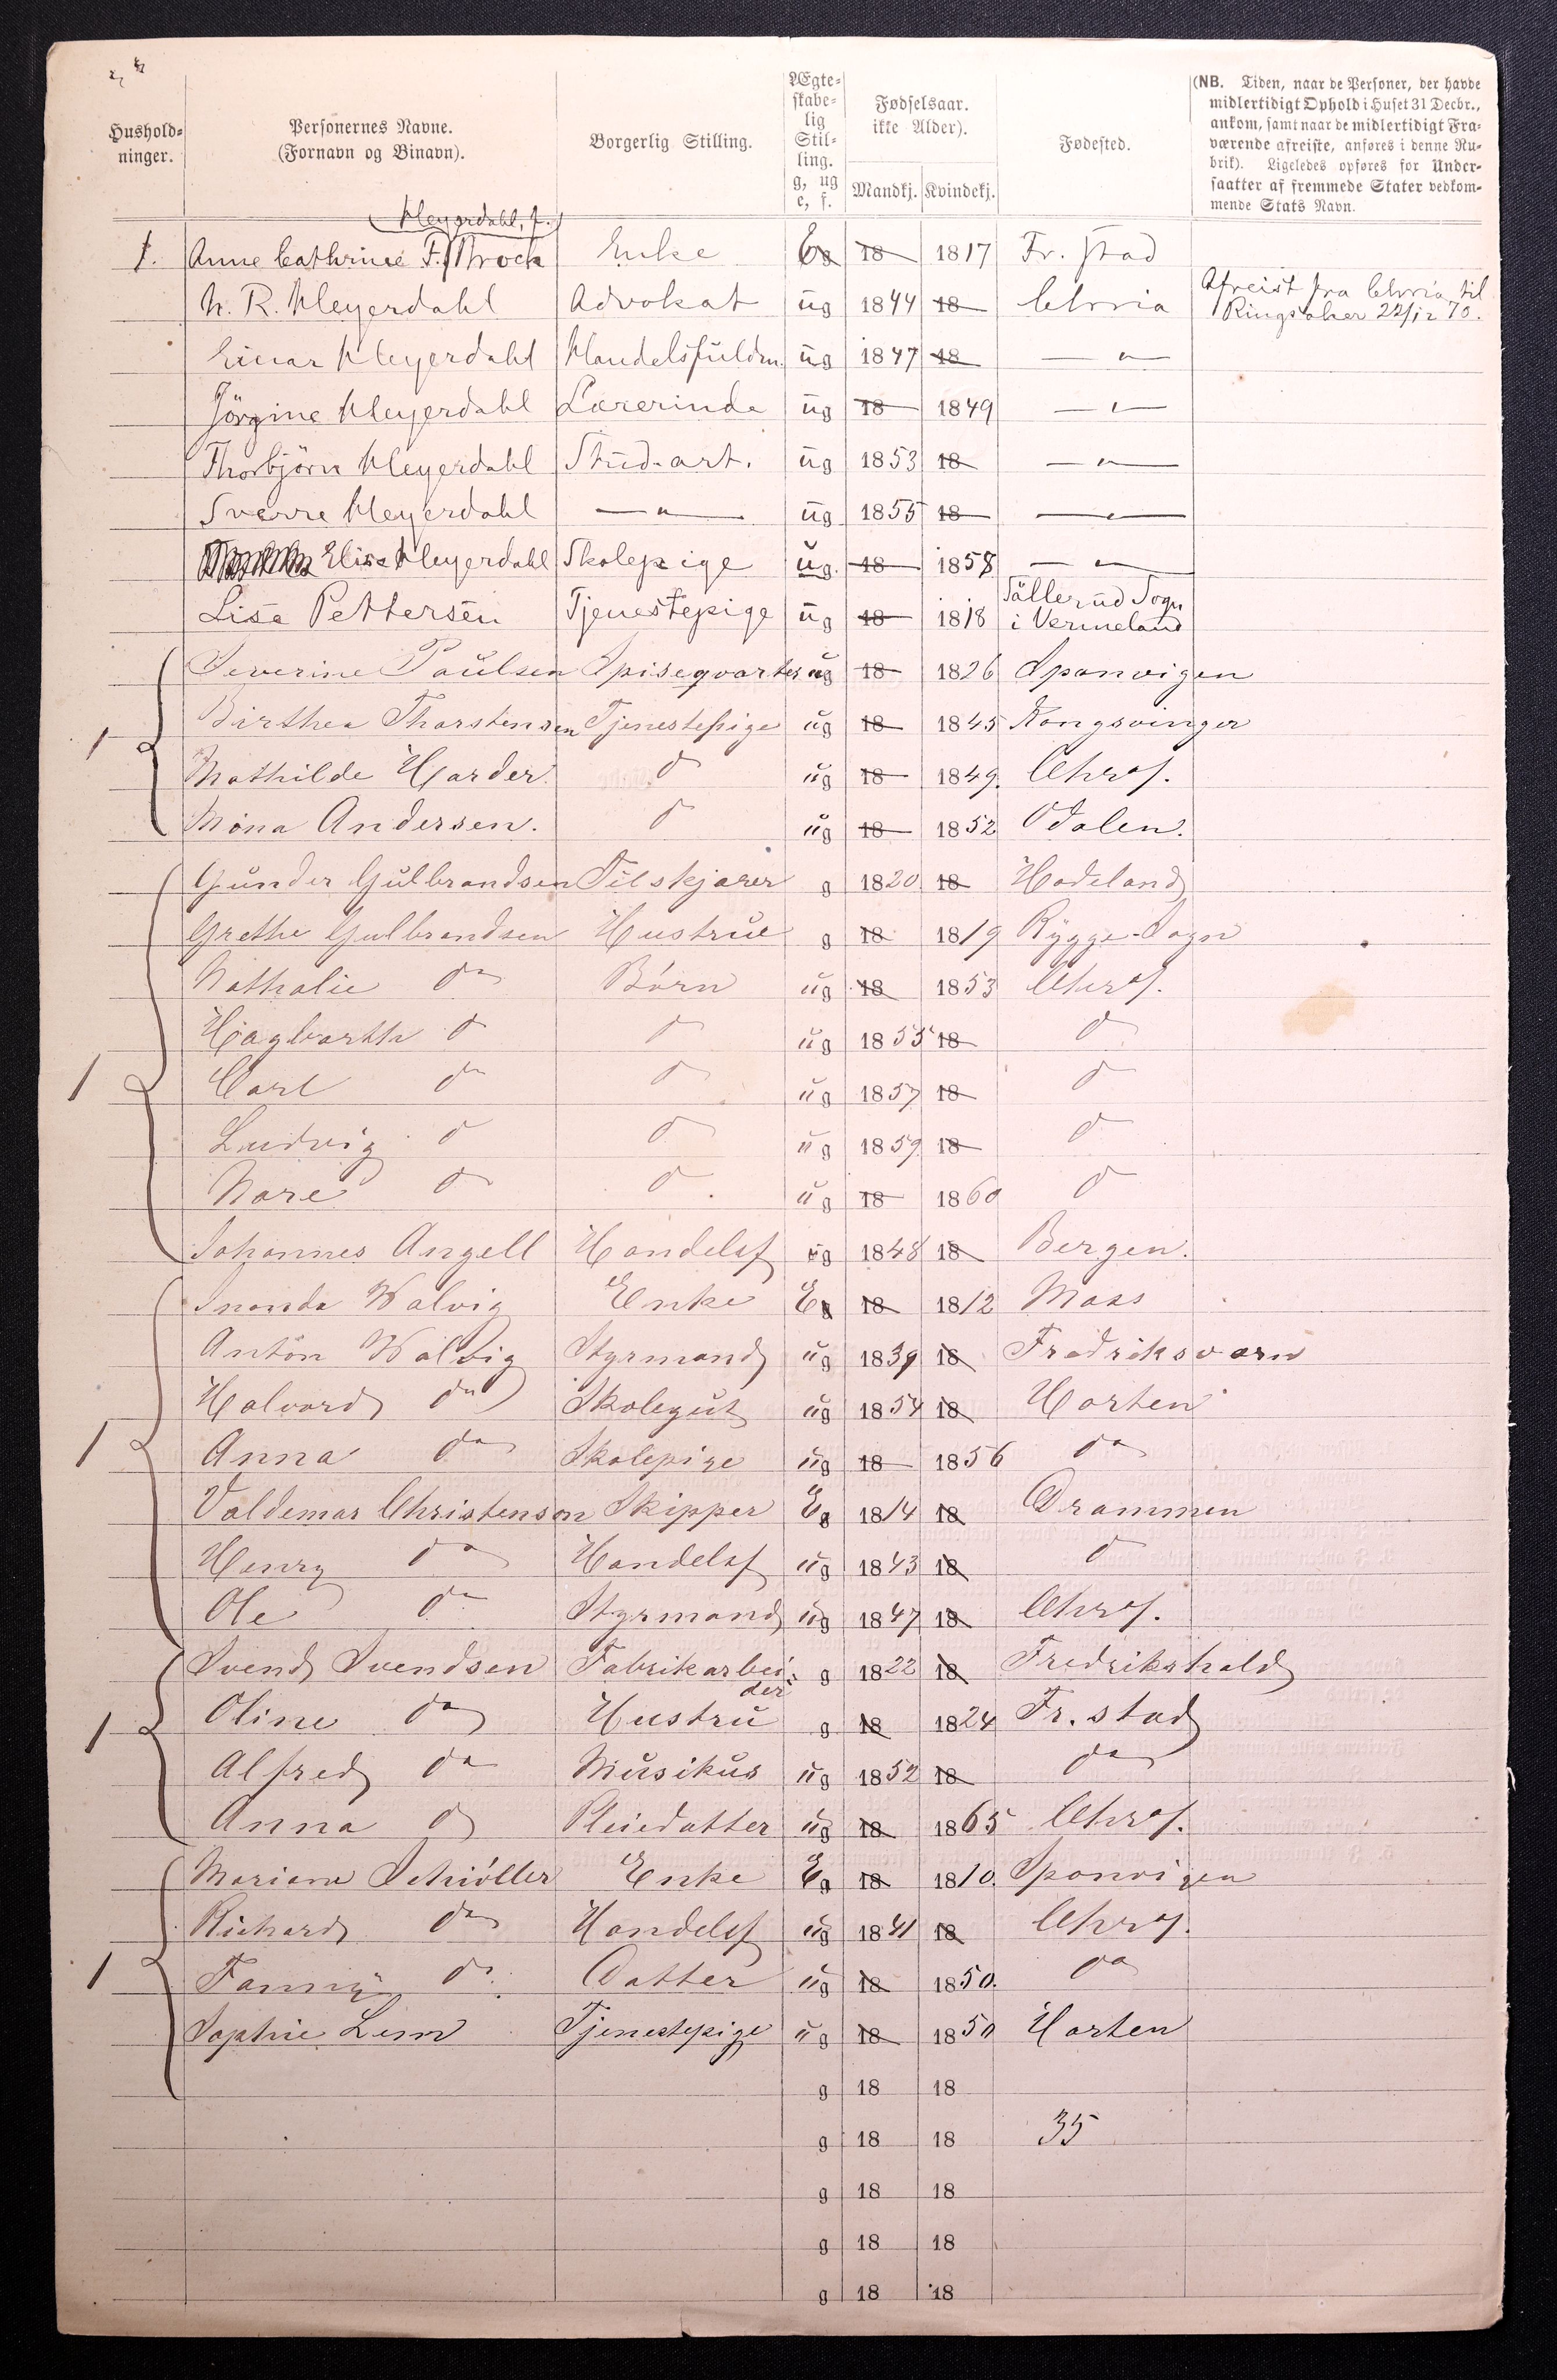 Hushold-
ninger.
Personernes Navne.
(Fornavn og Binavn).
Borgerlig Stilling.
Ægte-
skabe-
lig
Stil-
ling.
g, ug
e, f.
Fødselsaar.
ikke Alder).
Mandkj. Kvindekj.
Fødested.
(NB. Tiden, naar de Personer, der havde
midlertidigt Ophold i Huset 31 Decbr.,
ankom, samt naar de midlertidigt Fra-
værende afreiste, anføres i denne Ru-
brik). Ligeledes opføres for Under-
saatter af fremmede Stater vedkom-
mende Stats Navn.
(Heyerdahl, f.)
1. Anne Cathrine F. Brock Enke E 18 1817 Fr. stad
H. R. Heyerdahl Advokat ug 1844 18 Chria Afreist fra Chria til
Ringsaker 22/12 70.
Einar Heyerdahl Handelsfuldm. ug 1847 18 — " —
Jörgine Heyerdahl Lærerinde ug 18 1849 — " —
Thorbjörn Heyerdahl Stud. art. ug 1853 18 — " —
Sverre Heyerdahl — " — ug 1855 18 — " —
Elise Heyerdahl Skolepige ug. 18 1858 — " —
Lisa Pettersen Tjenestepige ug 18 1818 Tällerud Sogn
i Vermeland
Severine Paulsen Spiseqvarter ug 18 1826 Sponvigen
1 Birthea Thorstensen Tjenestepige ug 18 1845 Kongsvinger
Mathilde Harder. do ug 18 1849. Chra.
Mona Andersen. do ug 18 1852 Odalen.
Gunder Gulbrandsen Tilskjærer g 1820 18 Hadeland
Grethe Gulbrandsen Hustrue g 18 1819 Rygge Sogn
Nathalie do Børn ug 18 1853 Chra.
Hagbarth do do ug 1855 18 do
1 Carl do do ug 1857 18 do
Ludvig do do ug 1859 18 do
Nare do do. ug 18 1860 do
Johannes Angell Handelsf ug 1848 18 Bergen.
Walvig Enke E 18 1812 Moss
Anton Walvig Styrmand ug 1839 18 Fredriksværn
Halvord do Skolegut ug 1854 18 Horten
1 Anna do Skolepige ug 18 1856 do
Valdemar Christenson Skipper E 1814 18 Drammen
Henry do Handelsf ug 1843 18 do
Ole do Styrmand ug 1847 18 Chra.
Svend Svendsen Fabrikarbei-
der g 1822 18 Fredrikshald
1 Oline do Hustru g 18 1824 Fr. stad
Alfred do Musikus ug 1852 18 do
Anna do Pleiedatter ug 18 1865 Chra.
Mariane Schiöller Enke E 18 1810. Sponvigen
Richard do Handelsf ug 1841 18 Chra.
1 Fanny do. Datter ug 18 1850. do
Sophie Lem Tjenestepige ug 18 1850 Horten
g 18 18
g 18 18 35
g 18 18
g 18 18
g 18 18